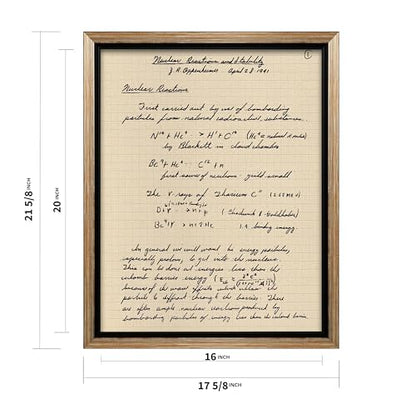 Nuclear Reactions and Stability
J. R. Oppenheimer April 28 1941
1
Nuclear Reactions
First carried out by use of bombarding
particles from natural radioactive substances.
N¹⁴ + He⁴ → H¹ + O¹⁴ (He⁴ = natural α particle)
by Blackett in cloud chambers
Be⁹ + He⁴ → C¹² + n
first source of neutrons - yield small
The γ rays of Thorium C" (2.62 MeV)
D + γ → n + p (Chadwick & Goldhaber)
Be⁹ + γ → n + 2He binding energy.
In general we will want to energy particles,
especially protons, to get into the nucleus.
This can be done at energies less than the
coulomb barrier energy
because of the wave effects which allow the
particle to diffract through the barrier. There
are often ample nuclear reactions produced by
bombarding particles of energy less than the coulomb barrier.
21 5/8 INCH
20 INCH
16 INCH
17 5/8 INCH